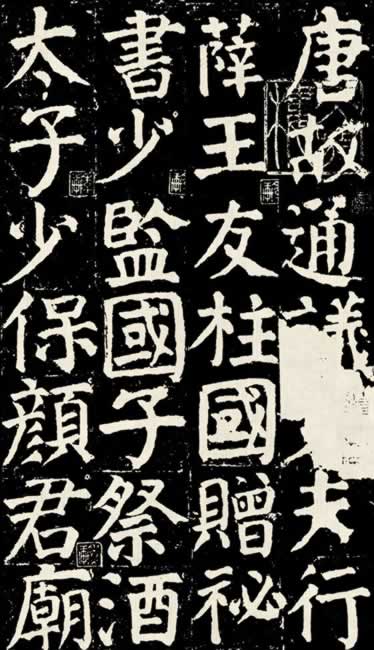 唐故通議夫行
薛王友柱國贈祕
書少監國子祭酒
太子少保顏君廟